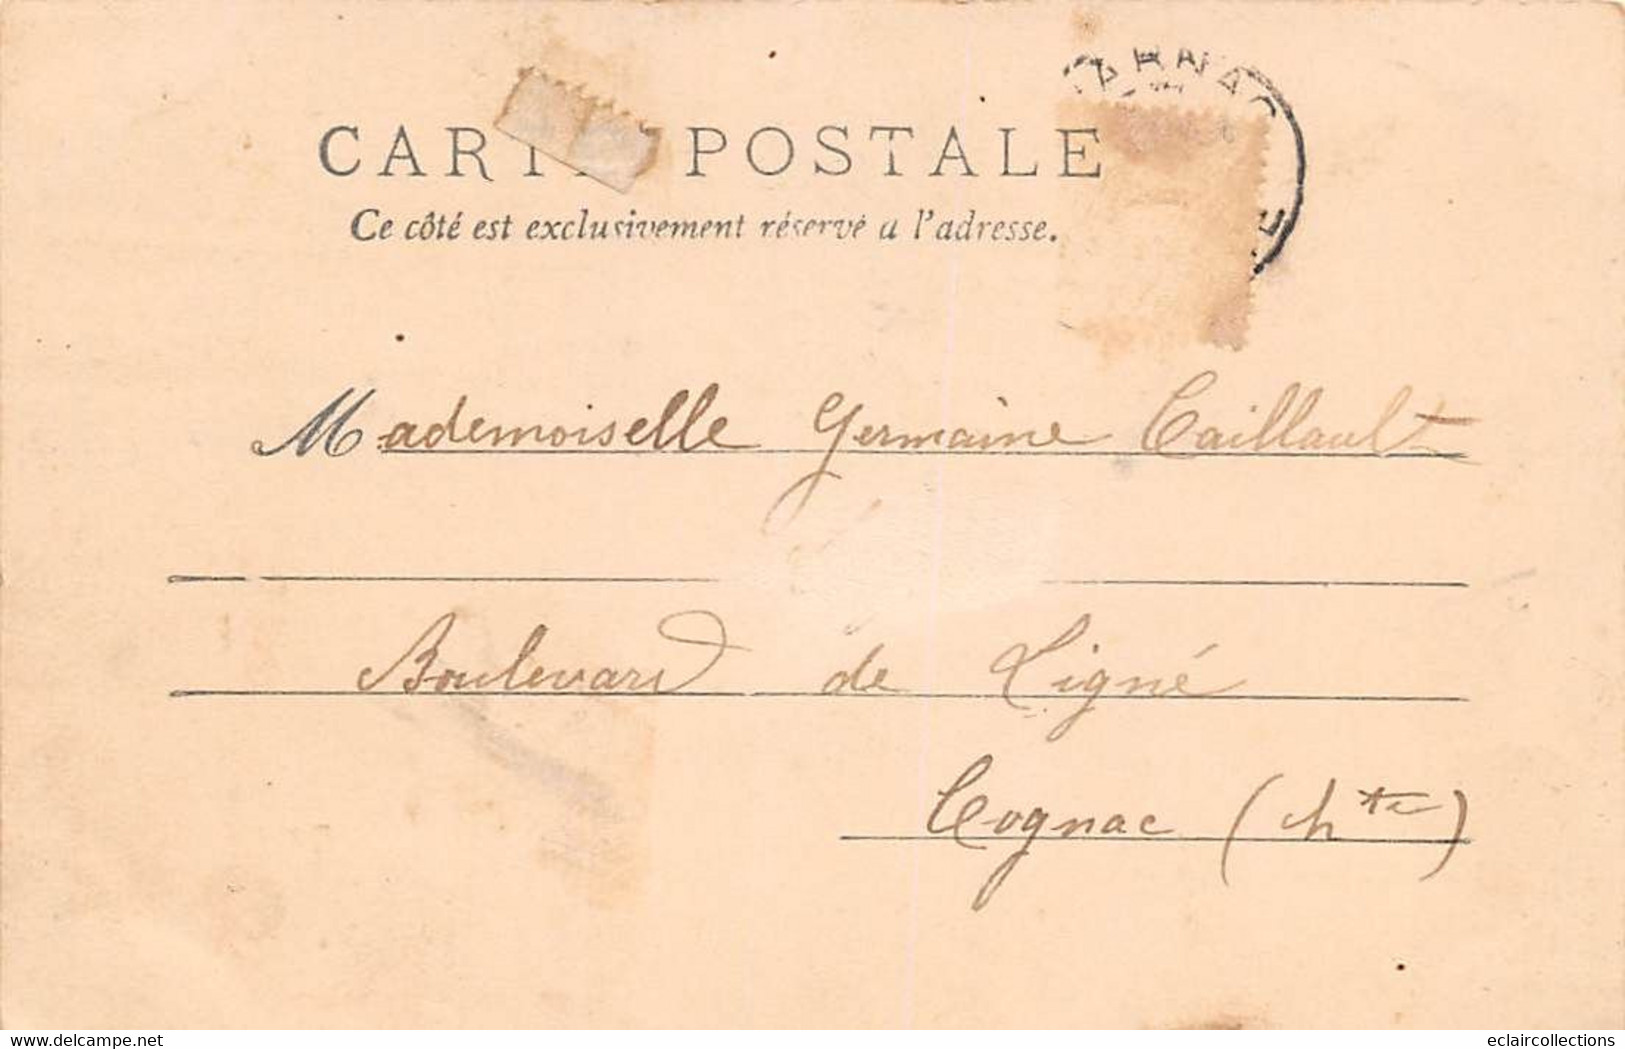 CARTE POSTALE
Ce côté est exclusivement réservé a l'adresse.
Mademoiselle Germaine Caillault
Boulevard de Ligné
Cognac (Chte)
delcampe.net
eclaircollections